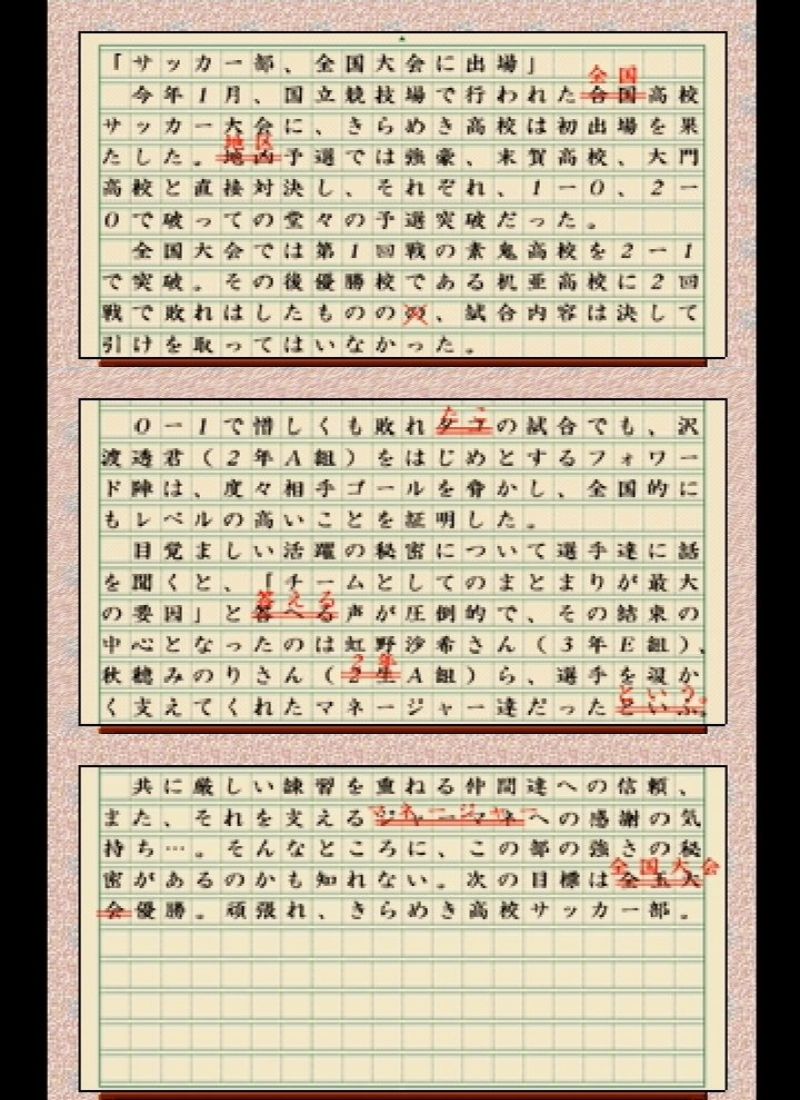 「サッカー部、全国大会に出場」
全国
今年1月、国立競技場で行われた合国高校
サッカー大会に、きらめき高校は初出場を果
地区
たした。地凶予選では強豪、末賀高校、大門
高校と直接対決し、それぞれ、1ー0、2ー
0で破っての堂々の予選突破だった。
全国大会では第1回戦の素鬼高校を2ー1
で突破。その後優勝校である机亜高校に2回
戦で敗れはしたもののの、試合内容は決して
引けを取ってはいなかった。
たこ
0ー1で惜しくも敗れタコの試合でも、沢
渡透君(2年A組)をはじめとするフォワー
ド陣は、度々相手ゴールを脅かし、全国的に
もレベルの高いことを証明した。
目覚ましい活躍の秘密について選手達に話
を聞くと、「チームとしてのまとまりが最大
答える
の要因」と答へる声が圧倒的で、その結束の
中心となったのは虹野沙希さん(3年E組)、
2年
秋穂みのりさん(2生A組)ら、選手を温か
という。
く支えてくれたマネージャー達だったといふ。
共に厳しい練習を重ねる仲間達への信頼、
マネージャー
また、それを支えるジャーマネへの感謝の気
持ち…。そんなところに、この部の強さの秘
全国大会
密があるのかも知れない。次の目標は全玉大
会優勝。頑張れ、きらめき高校サッカー部。